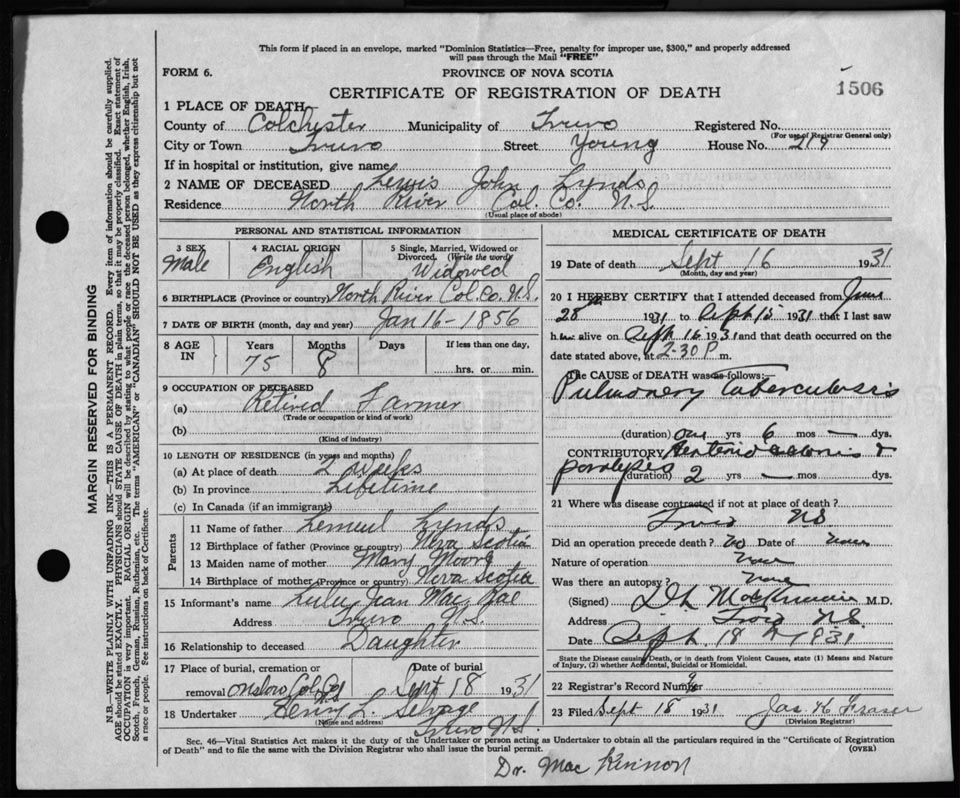 This form if placed in an envelope, marked "Dominion Statistics—Free, penalty for improper use, $300," and properly addressed
will pass through the Mail "FREE"
FORM 6.
PROVINCE OF NOVA SCOTIA
CERTIFICATE OF REGISTRATION OF DEATH
1506
1 PLACE OF DEATH
County of Colchester Municipality of Truro Registered No.
(For use of Registrar General only)
City or Town Truro Street Young House No. 219
If in hospital or institution, give name
2 NAME OF DECEASED Lewis John Lynds
Residence North River Col. Co. N.S.
(Usual place of abode)
PERSONAL AND STATISTICAL INFORMATION
3 SEX 4 RACIAL ORIGIN 5 Single, Married, Widowed or
Divorced. (Write the word)
Male English Widowed
6 BIRTHPLACE (Province or country) North River Col. Co. N.S.
7 DATE OF BIRTH (month, day and year) Jan 16 - 1856
8 AGE IN Years Months Days If less than one day,
75 8 hrs. or min.
9 OCCUPATION OF DECEASED
(a) Retired Farmer
(Trade or occupation or kind of work)
(b)
(Kind of industry)
10 LENGTH OF RESIDENCE (in years and months)
(a) At place of death 2 weeks
(b) In province Lifetime
(c) In Canada (if an immigrant)
Parents
11 Name of father Lemuel Lynds
12 Birthplace of father (Province or country) Nova Scotia
13 Maiden name of mother Mary Moore
14 Birthplace of mother (Province or country) Nova Scotia
15 Informant's name Lulu Jean Mac Rae
Address Truro N.S.
16 Relationship to deceased Daughter
17 Place of burial, cremation or Date of burial
removal Onslow Col. Co. N.S. Sept 18 1931
18 Undertaker Henry L. Selvage
(Name and address)
Truro N.S.
MEDICAL CERTIFICATE OF DEATH
19 Date of death Sept 16 1931
(Month, day and year)
20 I HEREBY CERTIFY that I attended deceased from June
28th 1931 to Sept 15 1931 that I last saw
him alive on Sept 15 1931 and that death occurred on the
date stated above, at 2-30 P m.
The CAUSE OF DEATH was as follows:—
Pulmonary Tuberculosis
(duration) one yrs 6 mos — dys.
CONTRIBUTORY &
paralysis
(duration) 2 yrs — mos — dys.
21 Where was disease contracted if not at place of death?
Truro NS
Did an operation precede death? No Date of None
Nature of operation None
Was there an autopsy? None
(Signed) M.D.
Address Truro NS
Date Sept. 18 1931
State the Disease causing Death, or in death from Violent Causes, state (1) Means and Nature
of Injury, (2) whether Accidental, Suicidal or Homicidal.
22 Registrar's Record Number
23 Filed Sept 18 1931 Jas. H. Fraser
(Division Registrar)
Sec. 46—Vital Statistics Act makes it the duty of the Undertaker or person acting as Undertaker to obtain all the particulars required in the "Certificate of Registration
of Death" and to file the same with the Division Registrar who shall issue the burial permit.
(OVER)
Dr. Mac Kinnon
MARGIN RESERVED FOR BINDING
N.B.—WRITE PLAINLY WITH UNFADING INK—THIS IS A PERMANENT RECORD. Every item of information should be carefully supplied.
AGE should be stated EXACTLY. PHYSICIANS should STATE CAUSE OF DEATH in plain terms, so that it may be properly classified. Exact statement of
OCCUPATION is very important. RACIAL ORIGIN will be described by stating to what people or race the deceased person belonged, whether English, Irish,
Scotch, French, German, Russian, Ruthenian, etc. The terms "AMERICAN" or "CANADIAN" SHOULD NOT BE USED as they express citizenship but not
a race or people. See instructions on back of Certificate.